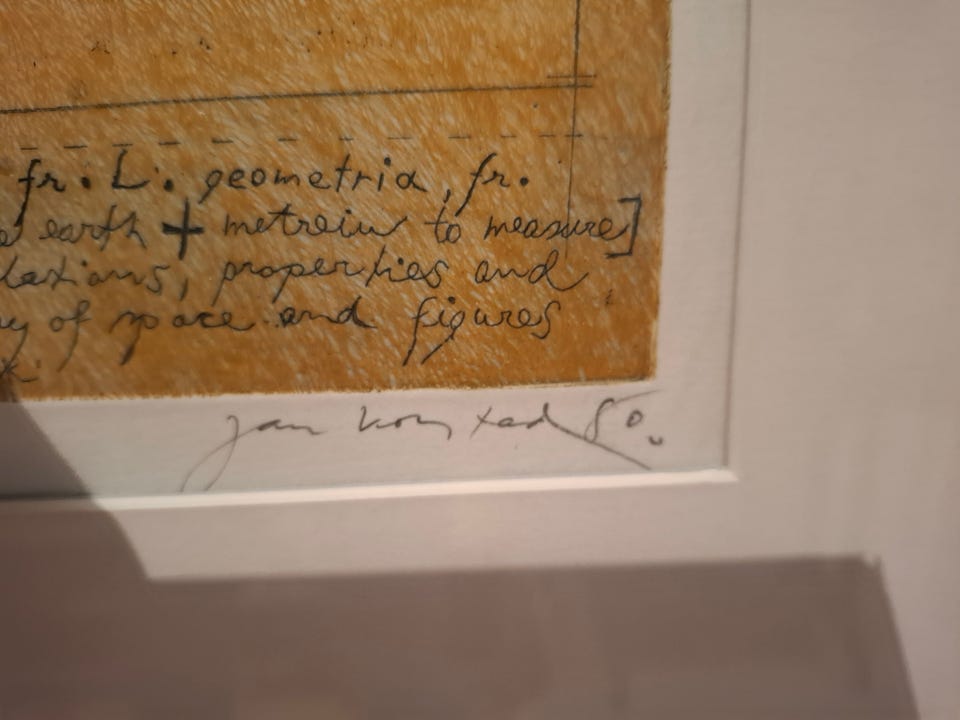 fr. L. geometria, fr.
earth + metrein to measure]
lations, properties and
of space and figures
Jan 80.